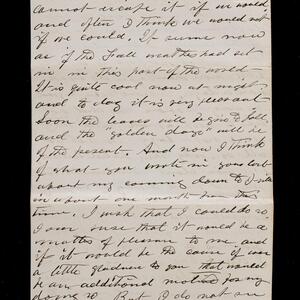 cannot escape it if we would
and often I think we would not
if we could. It seems now
as if the Fall weather had set
in in this part of the world
It is quite cool now at night
and to day it is very pleasant
Soon the leaves will begin to fall
and the "golden days" will be
of the present. And now I think
of what you wrote in your last
about my coming down to
in about one month from this
time. I wish that I could do so
I am sure that it would be a
matter of pleasure to me and
if it would be the cause of even
a little gladness to you that would
be an additional motive for my
doing so. But I do not